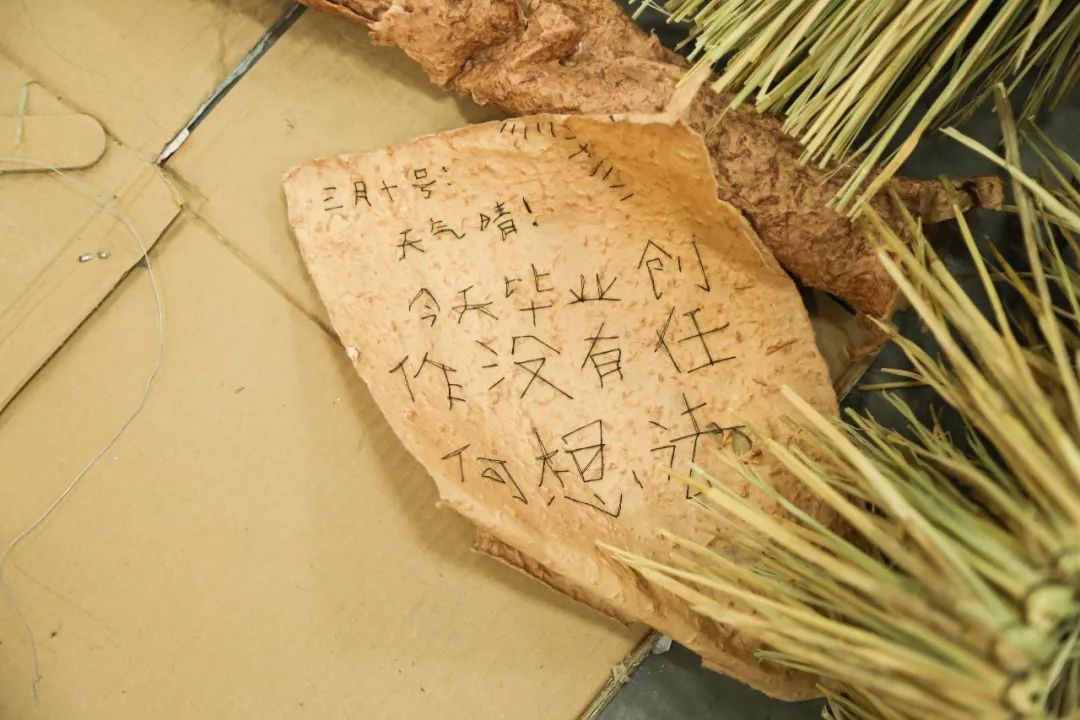 三月十号:
天气晴!
今天毕业创
作没有任
何想法